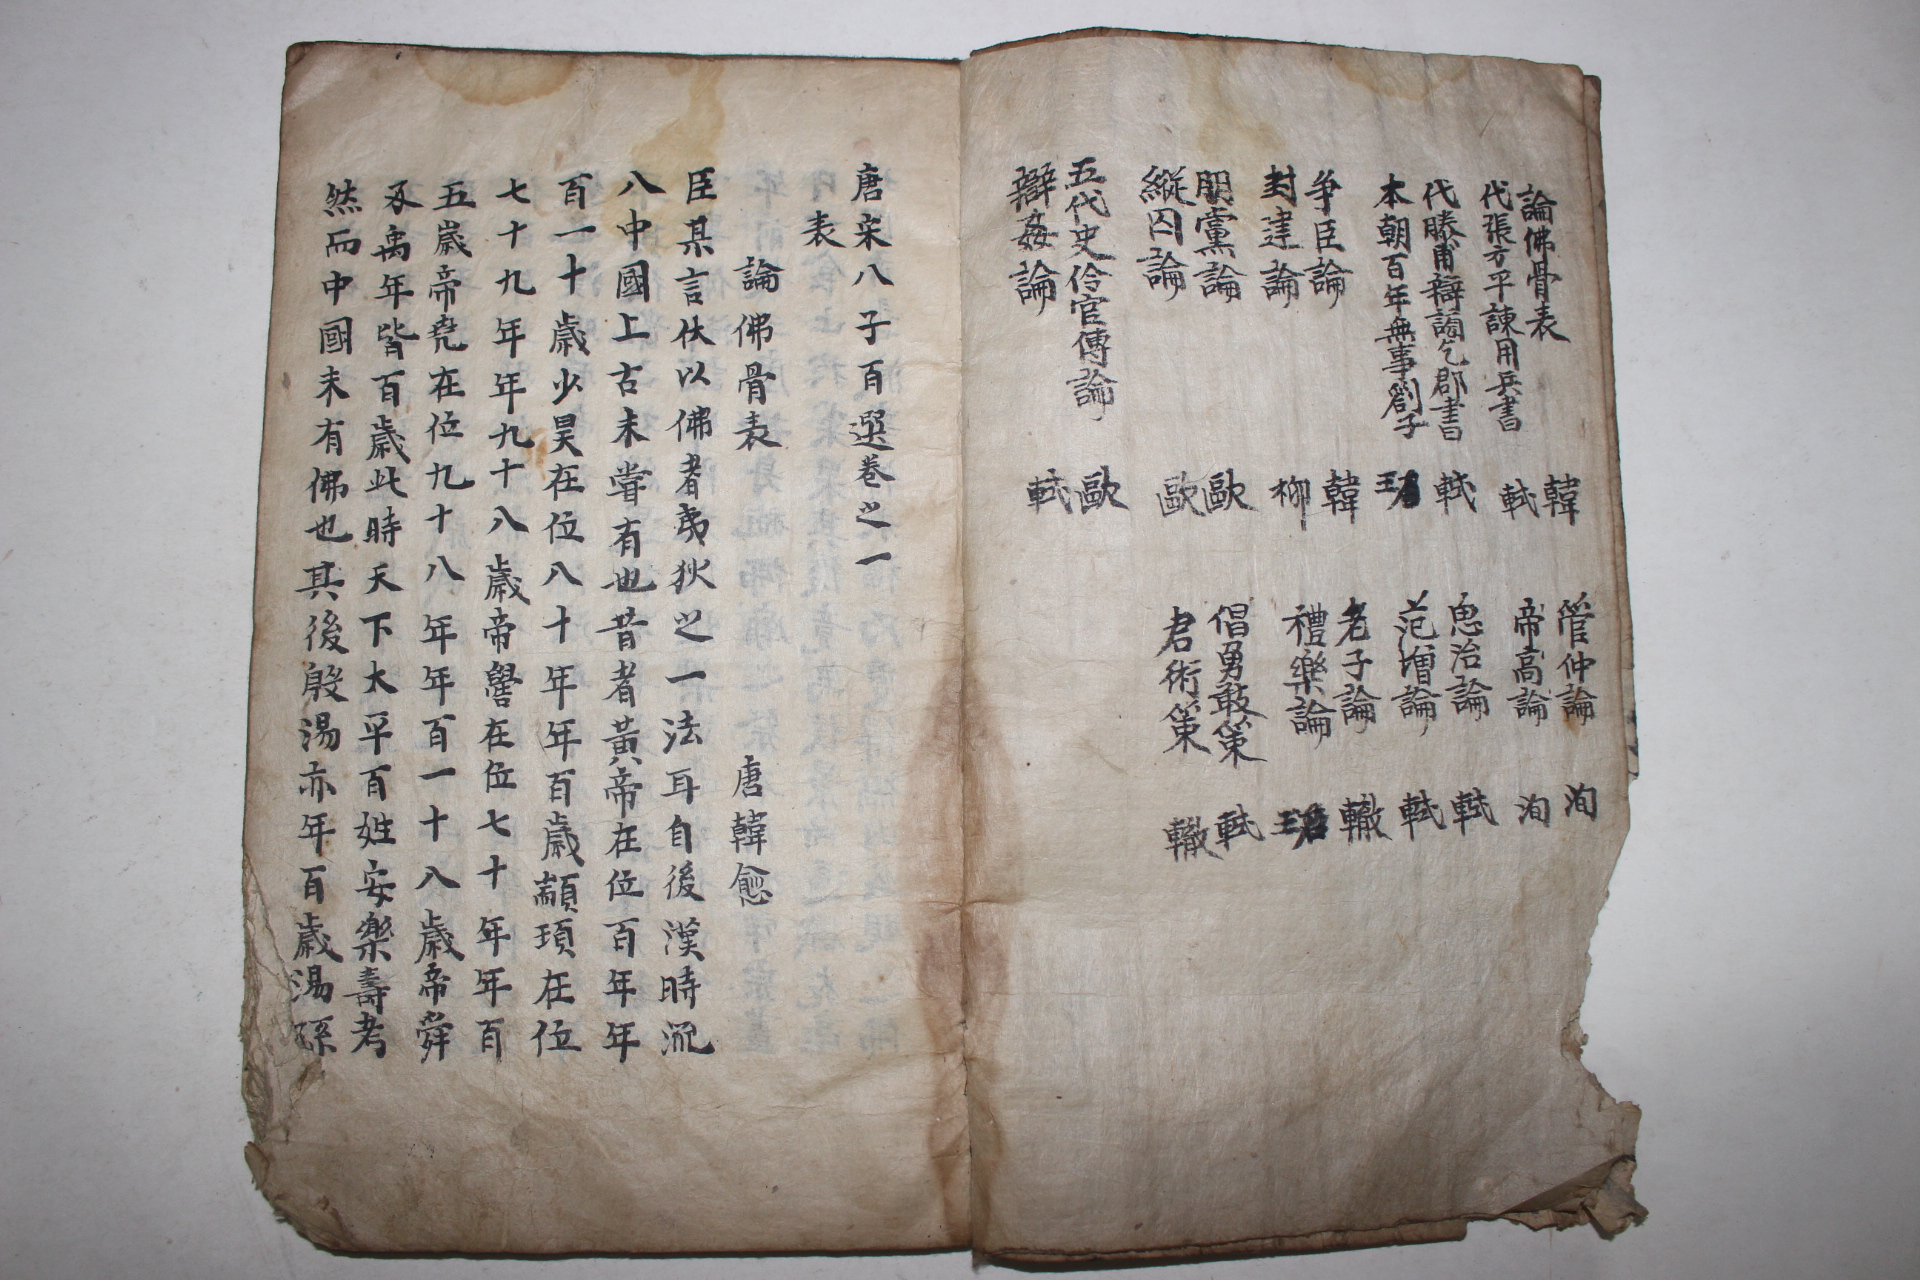 論佛骨表 韓 管仲論 洵
代張方平諫用兵書 軾 帝高論 洵
代滕甫辯謗乞郡書 軾 思治論 軾
本朝百年無事劄子 范增論 軾
爭臣論 韓 老子論 轍
封建論 柳 禮樂論
朋黨論 歐 倡勇敢策 軾
縱囚論 歐 君術策 轍
五代史伶官傳論 歐
辯姦論 軾
唐宋八子百選卷之一
表
論佛骨表 唐韓愈
臣某言伏以佛者夷狄之一法耳自後漢時流
八中國上古未嘗有也昔者黃帝在位百年年
百一十歲少昊在位八十年年百歲顓頊在位
七十九年年九十八歲帝嚳在位七十年年百
五歲帝堯在位九十八年年百一十八歲帝舜
及禹年皆百歲此時天下太平百姓安樂壽考
然而中國未有佛也其後殷湯亦年百歲湯孫